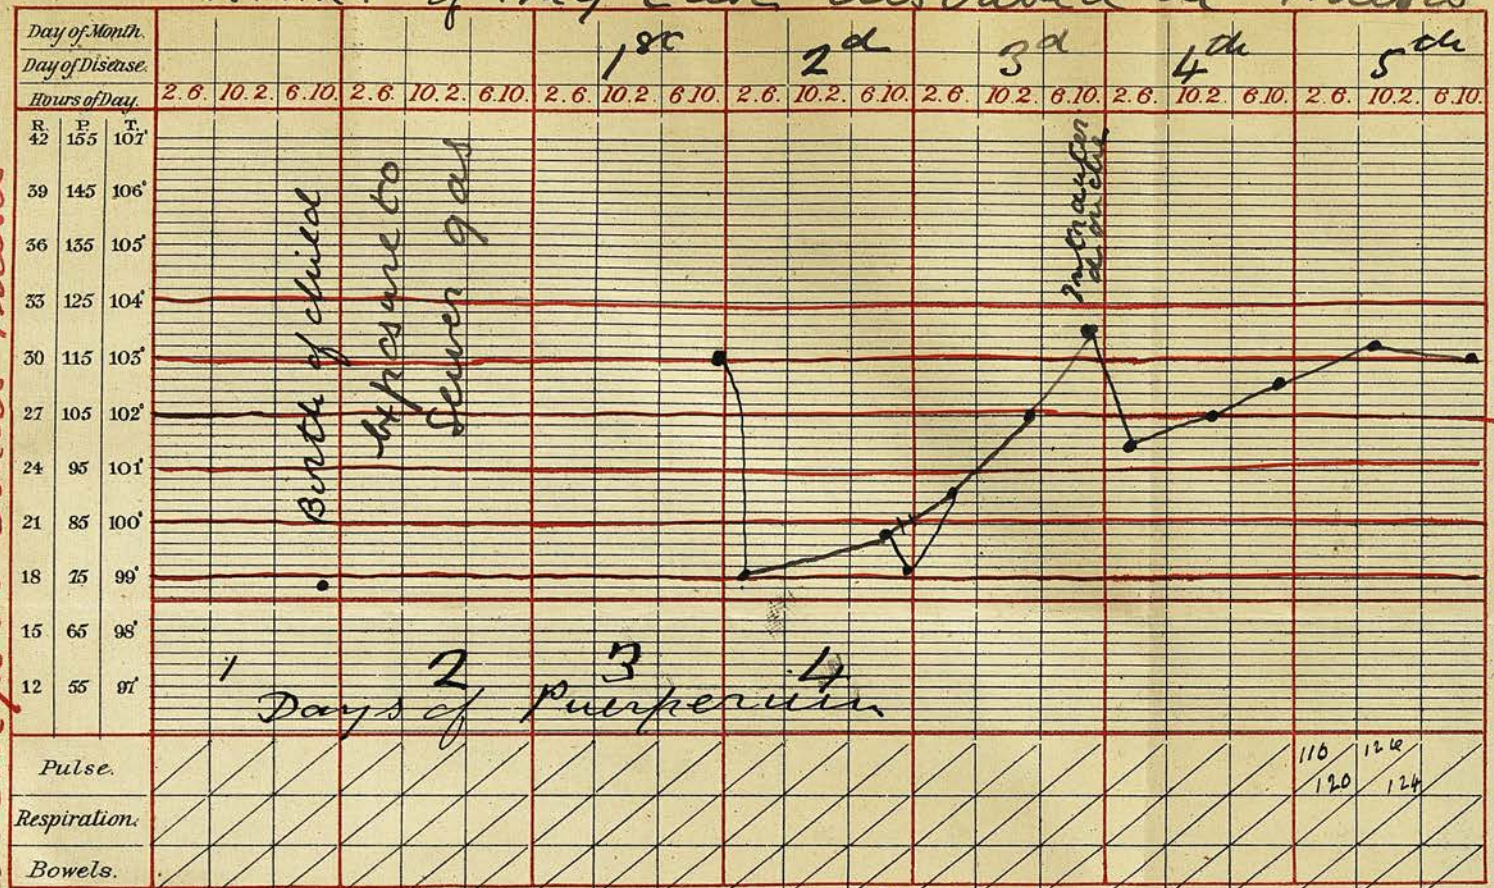 of my case described in Thesis
Day of Month.
Day of Disease. 1st 2d 3d 4th 5th
Hours of Day. 2.6. 10.2. 6.10. 2.6. 10.2. 6.10. 2.6. 10.2. 6.10. 2.6. 10.2. 6.10. 2.6. 10.2. 6.10. 2.6. 10.2. 6.10. 2.6. 10.2. 6.10.
R. P. T.
42 155 107°
39 145 106°
36 135 105°
33 125 104°
30 115 103°
27 105 102°
24 95 101°
21 85 100°
18 75 99°
15 65 98°
12 55 97°
Birth of child
Exposure to
Sewer gas
douche
1 2 3 4
Days of Puerperium
Pulse. 110 120 124
Respiration.
Bowels.